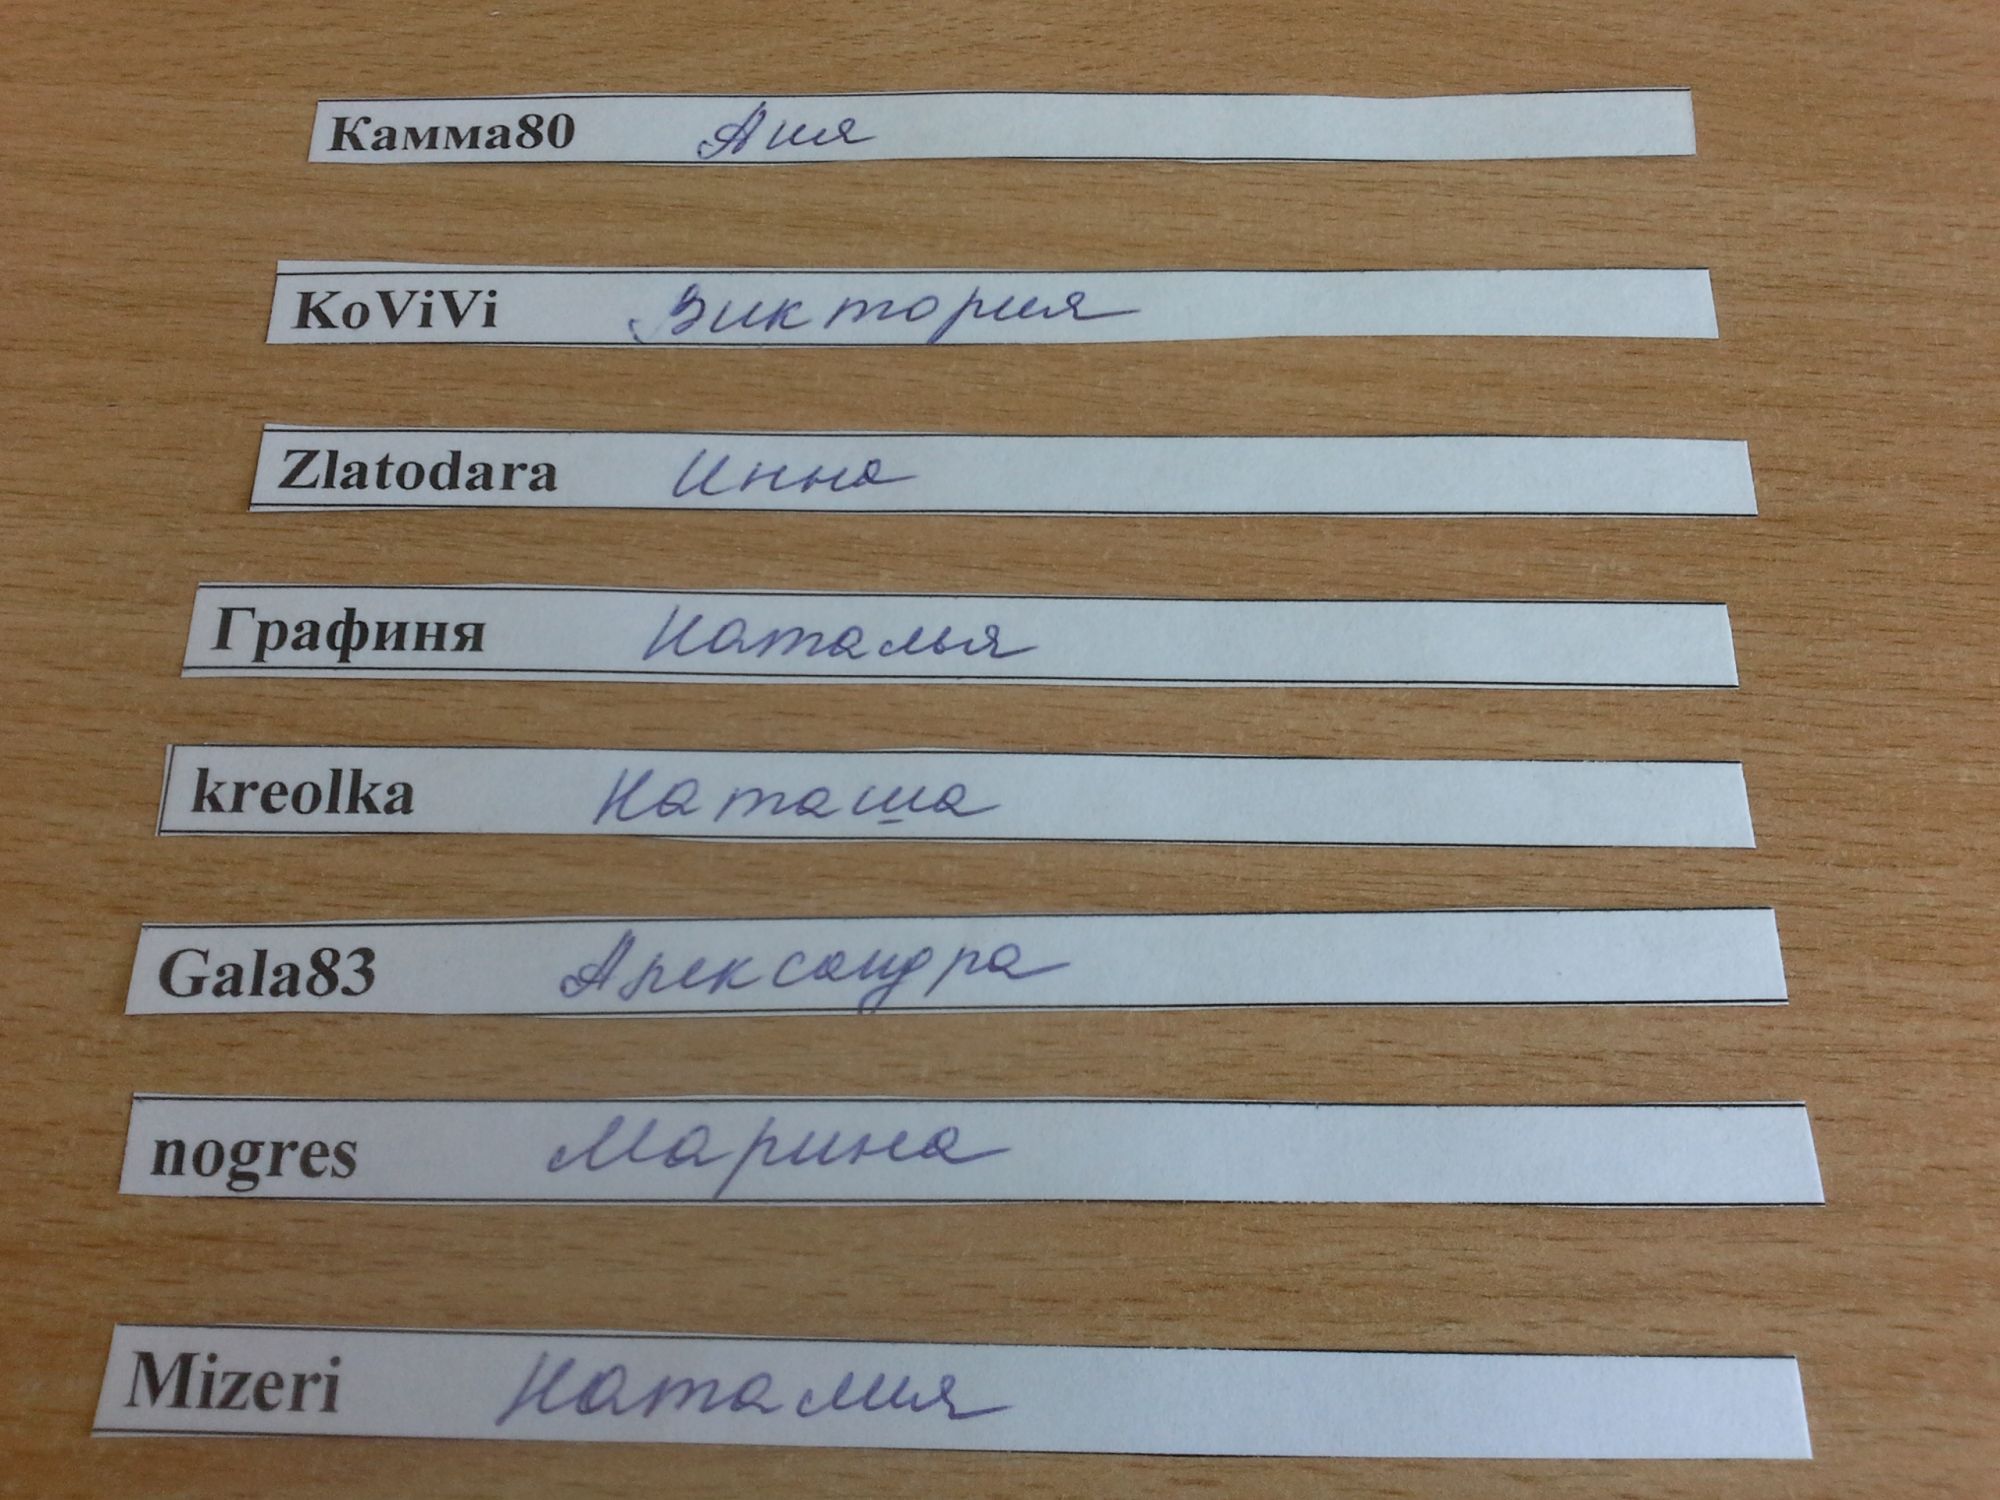 Камма80 Аня
KoViVi Виктория
Zlatodara Инна
Графиня Наталья
kreolka Наташа
Gala83 Александра
nogres Марина
Mizeri Наталия